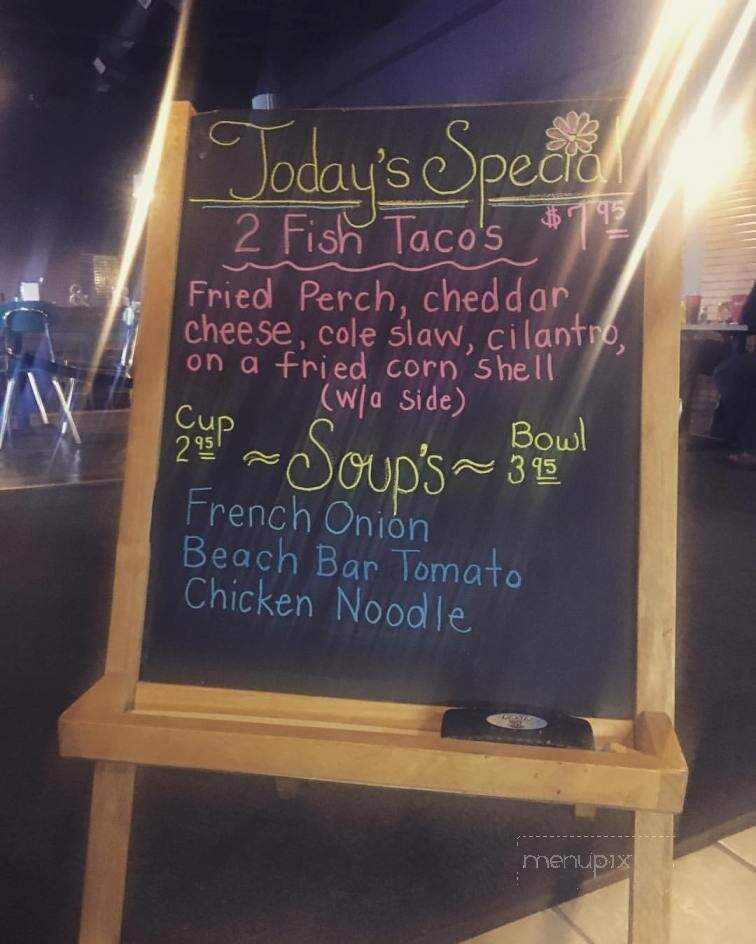 Today's Special
2 Fish Tacos $7 95
Fried Perch, cheddar
cheese, cole slaw, cilantro,
on a fried corn shell
(w/a side)
Cup
2 95
~ Soup's ~
Bowl
3 95
French Onion
Beach Bar Tomato
Chicken Noodle
menupix